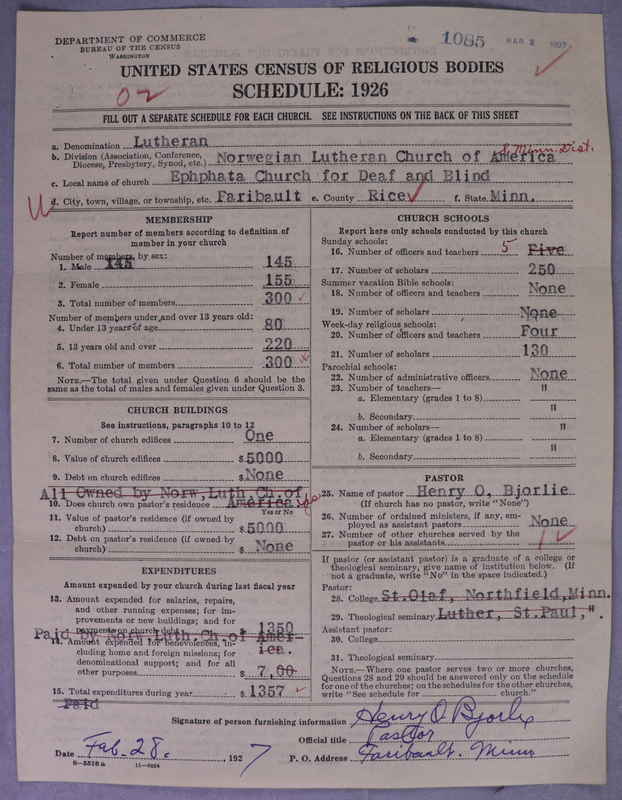 DEPARTMENT OF COMMERCE
BUREAU OF THE CENSUS
WASHINGTON
1085 MAR 2 1927
UNITED STATES CENSUS OF RELIGIOUS BODIES
SCHEDULE: 1926
02
FILL OUT A SEPARATE SCHEDULE FOR EACH CHURCH. SEE INSTRUCTIONS ON THE BACK OF THIS SHEET
a. Denomination Lutheran
b. Division (Association, Conference, Diocese, Presbytery, Synod, etc.) Norwegian Lutheran Church of America S. Minn. Dist.
c. Local name of church Ephphata Church for Deaf and Blind
d. City, town, village, or township, etc. Faribault e. County Rice f. State Minn.
MEMBERSHIP
Report number of members according to definition of
member in your church
Number of members, by sex:
1. Male 145 145
2. Female 155
3. Total number of members 300
Number of members under and over 13 years old:
4. Under 13 years of age 80
5. 13 years old and over 220
6. Total number of members 300
NOTE.—The total given under Question 6 should be
same as the total of males and females given under Question 3.
CHURCH BUILDINGS
See instructions, paragraphs 10 to 12
7. Number of church edifices One
8. Value of church edifices $ 5000
9. Debt on church edifices $ None
All Owned by Norw, Luth. Ch. of
10. Does church own pastor's residence America.
Yes or No
11. Value of pastor's residence (if owned by
church) $ 5000
12. Debt on pastor's residence (if owned by
church) $ None
EXPENDITURES
Amount expended by your church during last fiscal year
13. Amount expended for salaries, repairs,
and other running expenses; for im-
provements or new buildings; and for
payments on church debt $ 1350
Paid by Norw. Luth. Ch. of Amer-
14. Amount expended for benevolences, in-
cluding home and foreign missions; for ica.
denominational support; and for all
other purposes $ 7,00
15. Total expenditures during year $ 1357
Paid
CHURCH SCHOOLS
Report here only schools conducted by this church
Sunday schools:
16. Number of officers and teachers 5 Five
17. Number of scholars 250
Summer vacation Bible schools:
18. Number of officers and teachers None
19. Number of scholars None
Week-day religious schools:
20. Number of officers and teachers Four
21. Number of scholars 130
Parochial schools:
22. Number of administrative officers None
23. Number of teachers— "
a. Elementary (grades 1 to 8)
b. Secondary "
24. Number of scholars— "
a. Elementary (grades 1 to 8)
b. Secondary "
PASTOR
25. Name of pastor Henry O. Bjorlie
(If church has no pastor, write "None")
26. Number of ordained ministers, if any, em-
ployed as assistant pastors None
27. Number of other churches served by the
pastor or his assistants 1
If pastor (or assistant pastor) is a graduate of a college or
theological seminary, give name of institution below. (If
not a graduate, write "No" in the space indicated.)
Pastor:
28. College St. Olaf, Northfield, Minn.
29. Theological seminary Luther, St. Paul, ".
Assistant pastor:
30. College
31. Theological seminary
NOTE.—Where one pastor serves two or more churches,
Questions 28 and 29 should be answered only on the schedule
for one of the churches; on the schedules for the other churches,
write "See schedule for church."
Signature of person furnishing information Henry O. Bjorlie
Official title Pastor
Date Feb. 28. 1927 P. O. Address Faribault. Minn
8-5518 a 11-9554